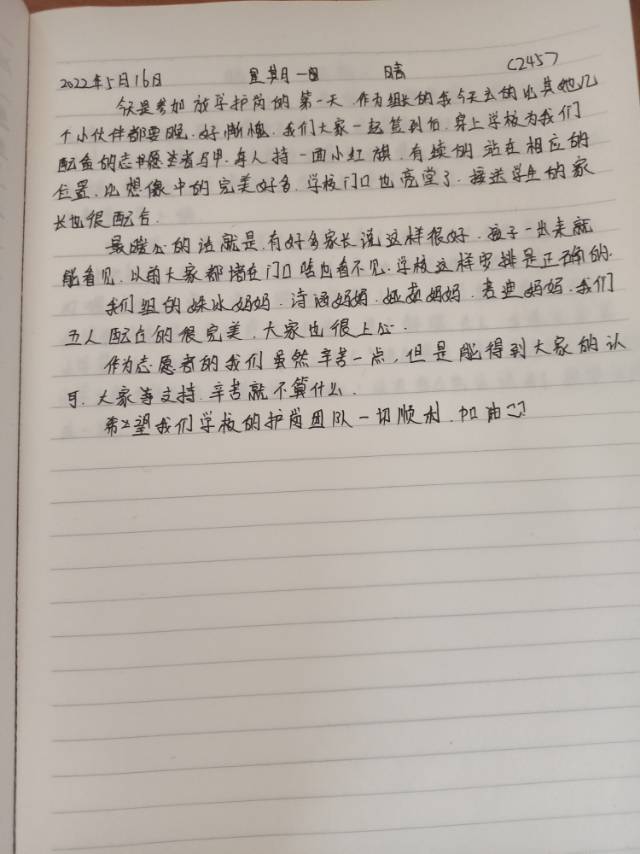 2022年5月16日 星期一 晴 (245)
今天是参加放学护岗的第一天.作为组长的我今天去的比其她几
个小伙伴都要晚.好惭愧.我们大家一起签到后.穿上学校为我们
配备的志愿者马甲.每人持一面小红旗.有续的站在相应的
位置.比想像中的完美好多.学校门口也亮堂了.接送学生的家
长也很配合.
最暖心的话就是.有好多家长说这样很好.孩子一出来就
能看见.以前大家都堵在门口啥也看不见.学校这样安排是正确的.
我们组的姝冰妈妈.诗涵妈妈.妈妈.妈妈.我们
五人配合的很完美.大家也很上心.
作为志愿者的我们虽然辛苦一点,但是能得到大家的认
可.大家等支持.辛苦就不算什么.
希望我们学校的护岗团队一切顺利.加油